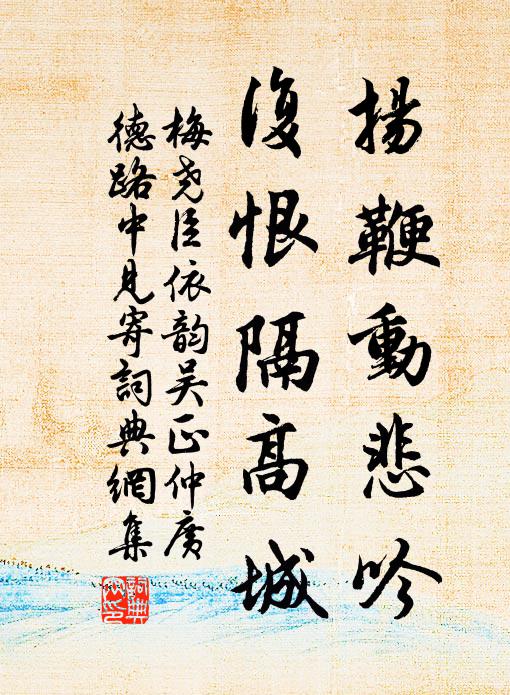 揚鞭動悲吟
復恨隔高城
梅堯臣依韵吴正仲廣
德路中見寄詞典網集